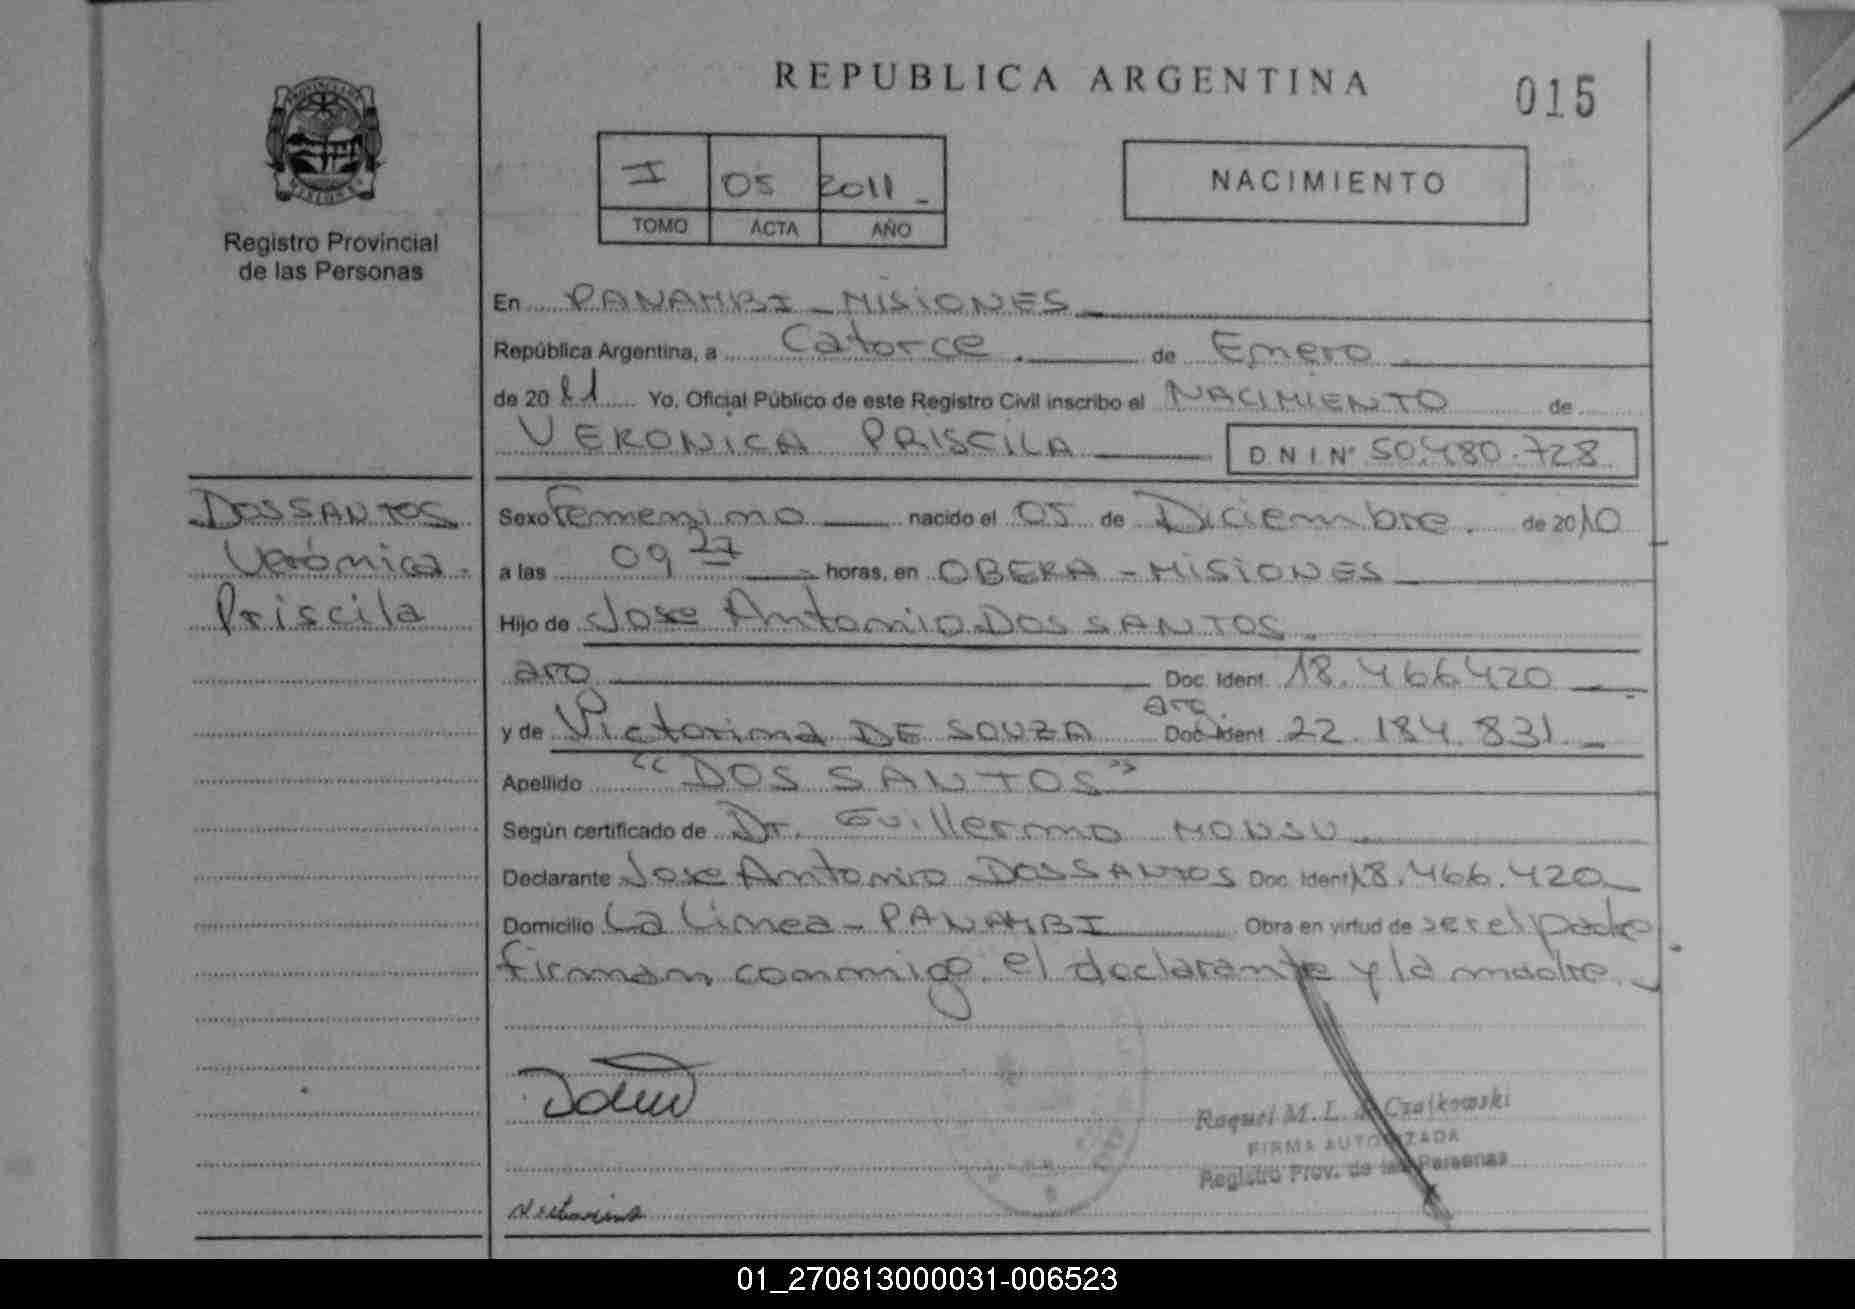 REPUBLICA ARGENTINA
015
I 05 2011
TOMO ACTA AÑO
NACIMIENTO
Registro Provincial
de las Personas
En PANAMBI - MISIONES
República Argentina, a Catorce de Enero
de 2011 Yo, Oficial Público de este Registro Civil inscribo el NACIMIENTO de
VERONICA PRISCILA D N I Nº 50.480.728
DOS SANTOS
Verónica
Priscila
Sexo Femenino nacido el 05 de Diciembre de 2010
a las 09 27 horas, en OBERA - MISIONES
Hijo de Jose Antonio DOS SANTOS
arg Doc. Ident. 18.466.420
y de Victorina DE SOUZA arg Doc. Ident. 22.184.831
Apellido "DOS SANTOS"
Según certificado de Dr. Guillermo
Declarante Jose Antonio DOS SANTOS Doc. Ident. 18.466.420
Domicilio La Linea - PANAMBI Obra en virtud de ser el padre
firman conmigo el declarante y la madre
Raquel M. L. Czaikowski
FIRMA AUTORIZADA
Registro Prov. de las Personas
Victorina
01_270813000031-006523